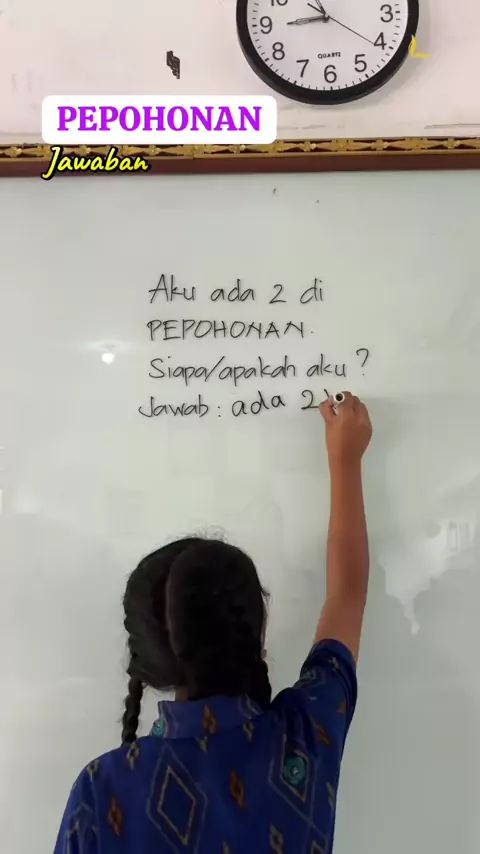 10
9
8
7
6
5
4
3
QUARTZ
PEPOHONAN
Jawaban
Aku ada 2 di
PEPOHONAN.
Siapa/apakah aku?
Jawab: ada 2